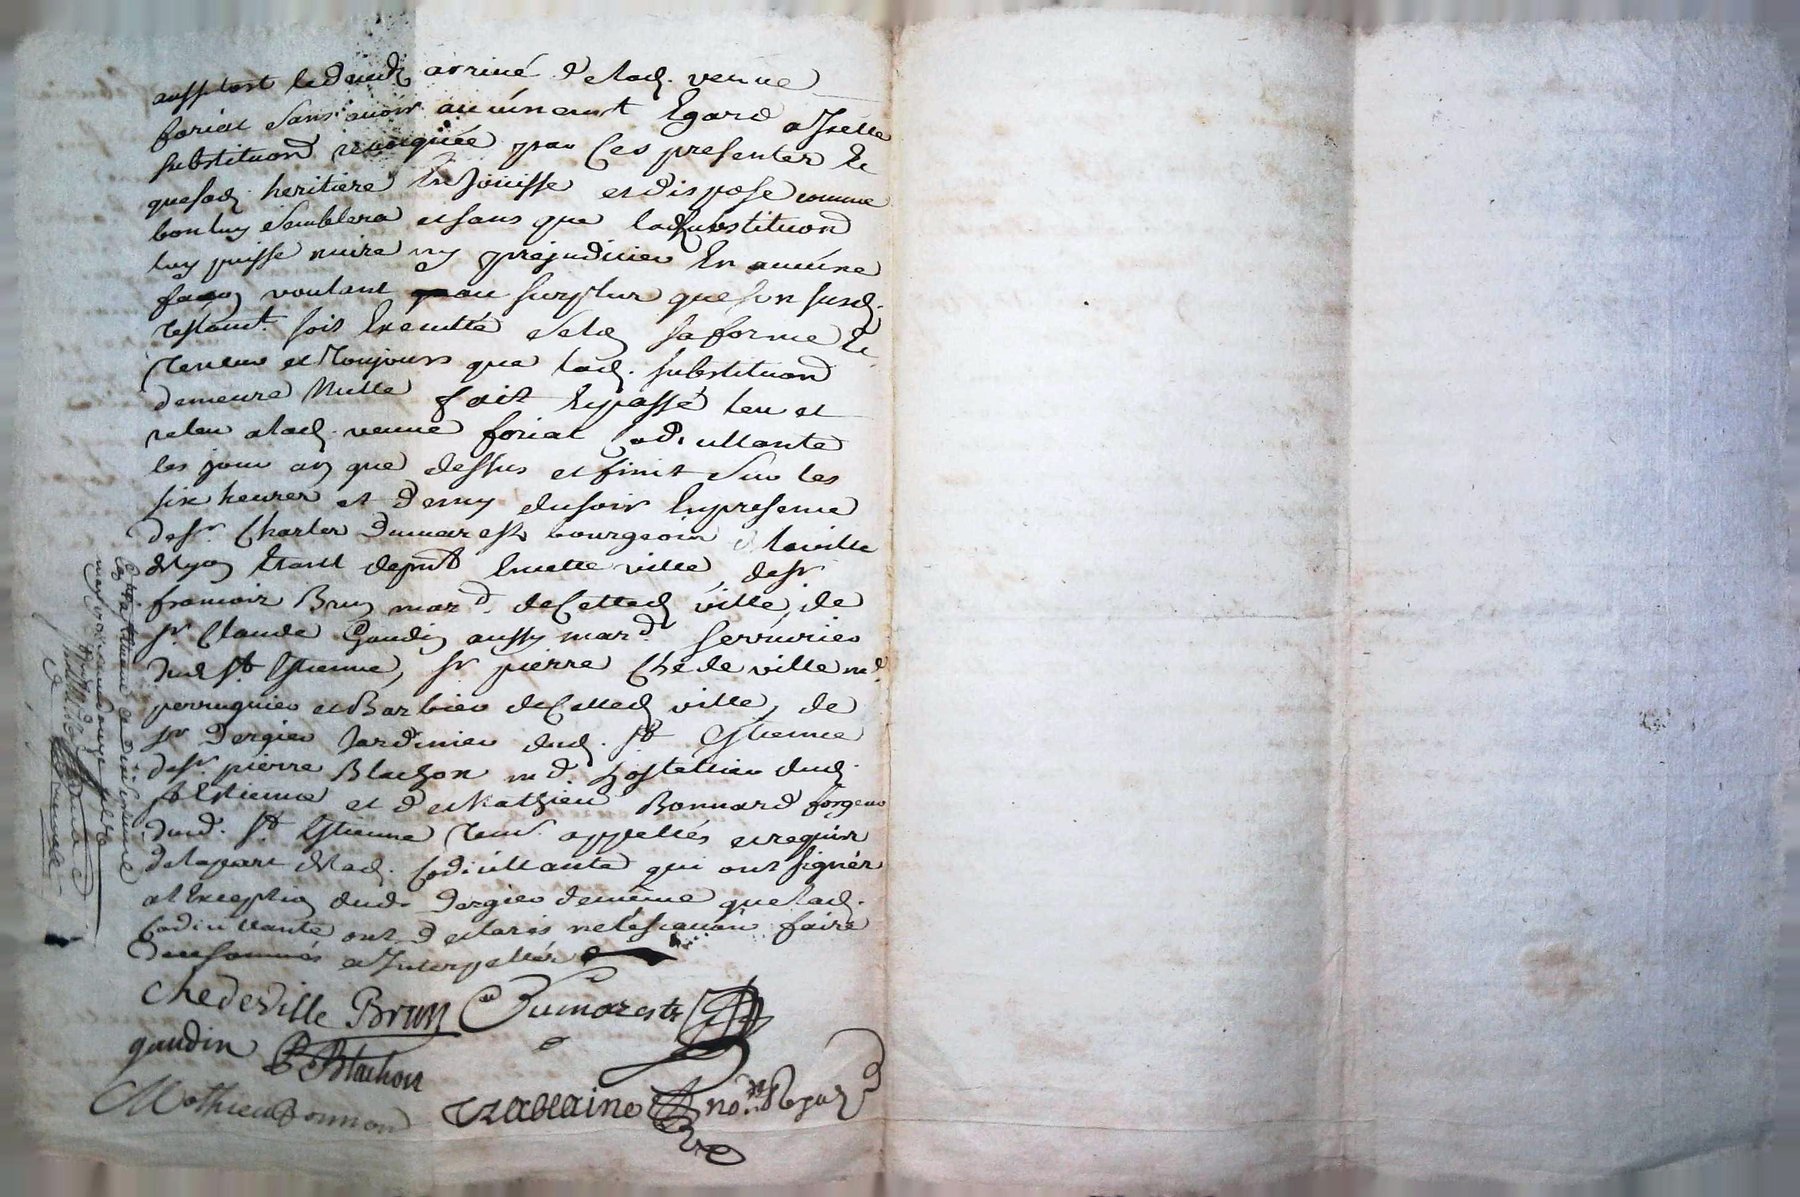 aussytost le deceds arrivé de lad. veuve
foriat sans avoir aucunement Egard a Icelle
substituõn revoquée par Ces presentes Et
que sad. heritiere En Jouisse et dispose comme
bon luy semblera et sans que lad substituõn
luy puisse nuire ny prejudicier En aucune
façon voulant au surplus que son susd.
testamt. soit Executté selon sa forme Et
teneur et toujours que lad. substituõn
demeure Nulle fait Et passé leu et
releu a lad. veuve foriat Codicillante
les jour an que dessus et finit sur les
six heures et demy du soir En presence
de sr. Charles Dumarest bourgeois la ville
de lyon Etant En cette ville, de sr
francois Brun mard. de Cetted ville, de
sr. Claude Gaudin aussy mard. serrurier
dud St Estienne, sr pierre Chedeville md.
perruquier et Barbier de Cetted ville, de
sr Dergier Jardinier dud. St Estienne
de sr. pierre Blachon md. hostellier dud.
St Estienne et de Mathieu Bonnard forgeur
dud. St Estienne tem. appellés et requis
de la part de lad. Codicillante qui ont signés
a l'Exception dud. Dergier de meme que lad.
Codicillante ont declarés ne le scavoir faire
de ce sommés et Interpellés
chedeville Brun Dumarest
gaudin P Blachon
Mathieu Bonnard